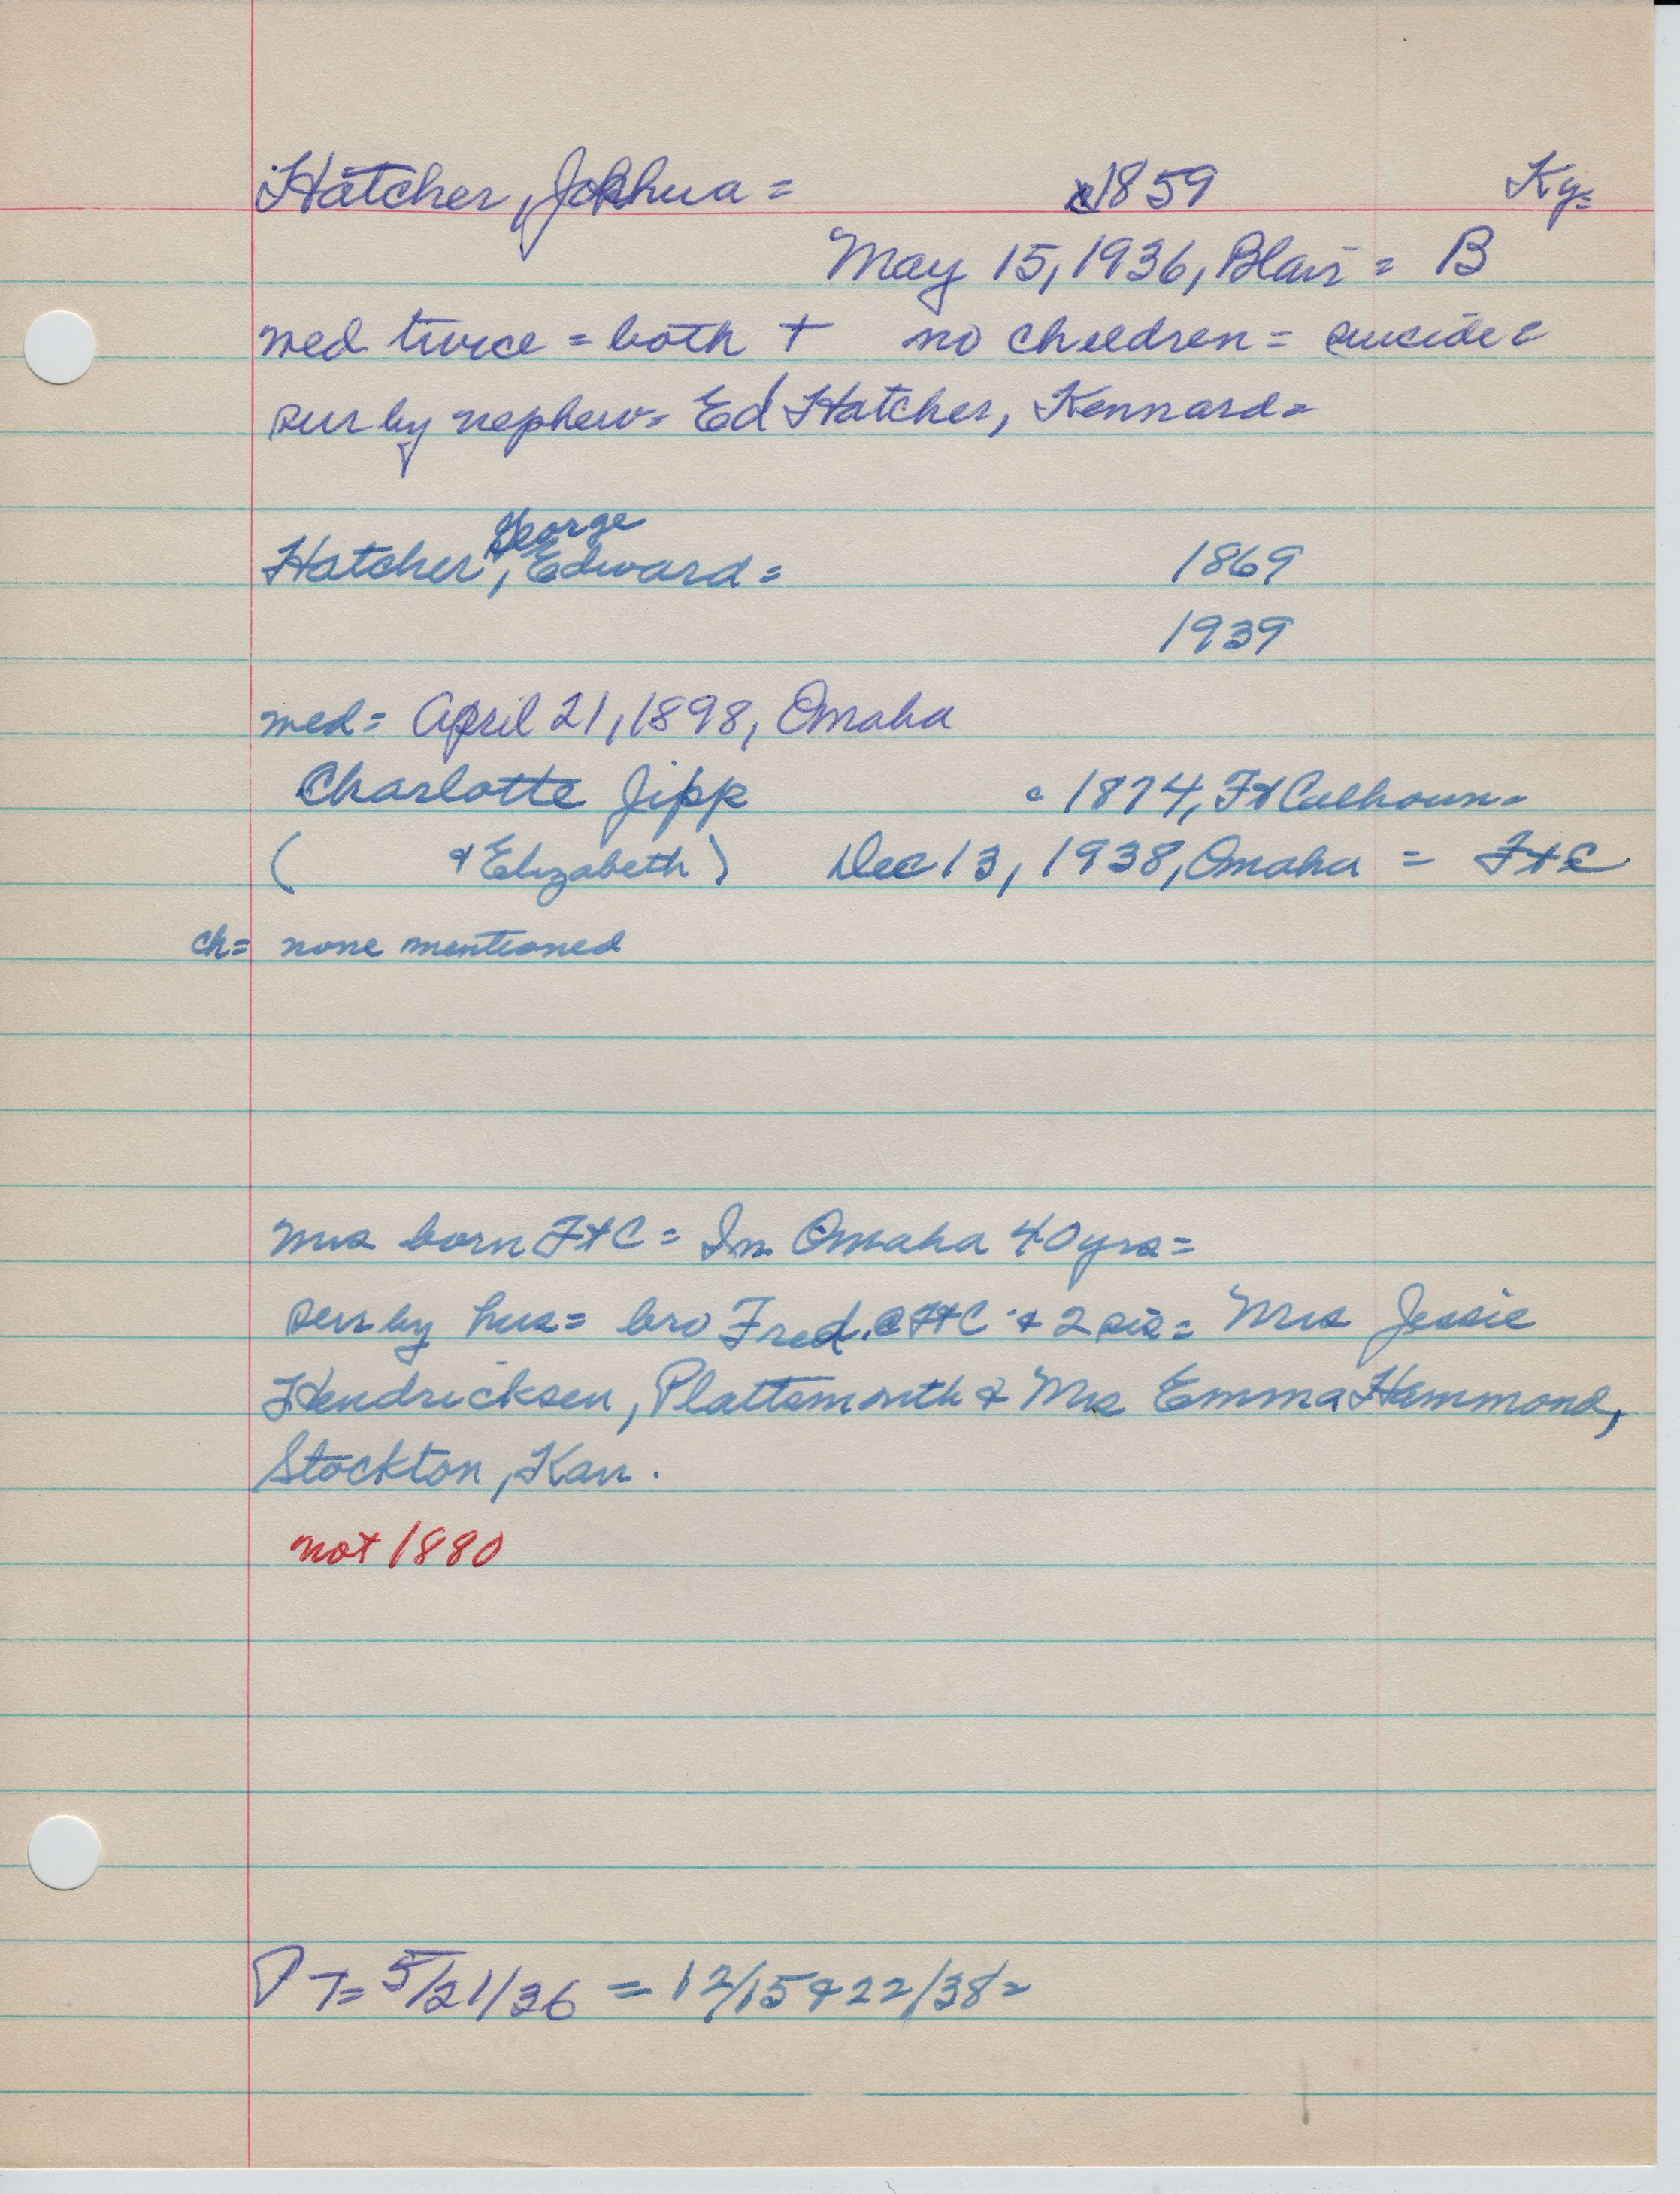 Hatcher, Joshua = c1859 Ky=
May 15, 1936, Blair = B
wed twice = both + no children = suicide =
sur by nephew = Ed Hatcher, Kennard =
George
Hatcher, Edward = 1869
1939
wed = April 21, 1898, Omaha
Charlotte Jipp c 1874, Ft Calhoun =
( & Elizabeth ) Dec 13, 1938, Omaha = Ft C
ch = none mentioned
Mrs born Ft C = In Omaha 40 yrs =
sur by hus = bro Fred. @ Ft C & 2 sis = Mrs Jessie
Hendricksen, Plattsmouth & Mrs Emma Hammond,
Stockton, Kan.
not 1880
PT = 5/21/36 = 12/15 & 22/38 =